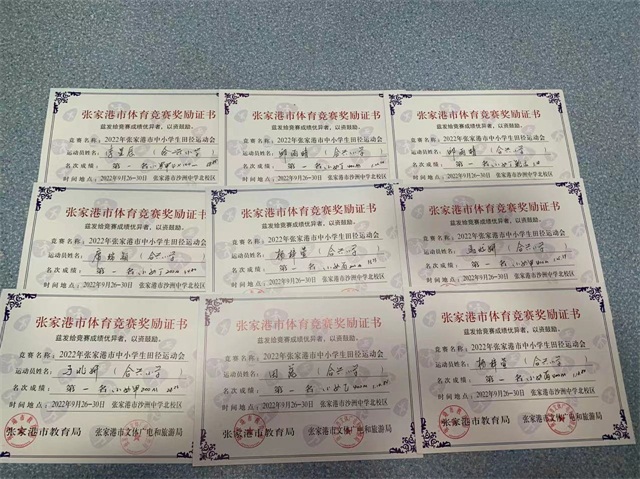 张家港市体育竞赛奖励证书
兹发给竞赛成绩优异者，以资鼓励。
竞赛名称：2022年张家港市中小学生田径运动会
运动员姓名：（合兴小学）
名次成绩：第一名
时间地点：2022年9月26-30日 张家港市沙洲中学北校区
张家港市体育竞赛奖励证书
兹发给竞赛成绩优异者，以资鼓励。
竞赛名称：2022年张家港市中小学生田径运动会
运动员姓名：（合兴小学）
名次成绩：第一名
时间地点：2022年9月26-30日 张家港市沙洲中学北校区
张家港市体育竞赛奖励证书
兹发给竞赛成绩优异者，以资鼓励。
竞赛名称：2022年张家港市中小学生田径运动会
运动员姓名：（合兴小学）
名次成绩：第一名
时间地点：2022年9月26-30日 张家港市沙洲中学北校区
张家港市体育竞赛奖励证书
兹发给竞赛成绩优异者，以资鼓励。
竞赛名称：2022年张家港市中小学生田径运动会
运动员姓名：（合兴小学）
名次成绩：第一名
时间地点：2022年9月26-30日 张家港市沙洲中学北校区
张家港市体育竞赛奖励证书
兹发给竞赛成绩优异者，以资鼓励。
竞赛名称：2022年张家港市中小学生田径运动会
运动员姓名：（合兴小学）
名次成绩：第一名
时间地点：2022年9月26-30日 张家港市沙洲中学北校区
张家港市体育竞赛奖励证书
兹发给竞赛成绩优异者，以资鼓励。
竞赛名称：2022年张家港市中小学生田径运动会
运动员姓名：（合兴小学）
名次成绩：第一名
时间地点：2022年9月26-30日 张家港市沙洲中学北校区
张家港市体育竞赛奖励证书
兹发给竞赛成绩优异者，以资鼓励。
竞赛名称：2022年张家港市中小学生田径运动会
运动员姓名：（合兴小学）
名次成绩：第一名
时间地点：2022年9月26-30日 张家港市沙洲中学北校区
张家港市教育局 张家港市文体广电和旅游局
张家港市体育竞赛奖励证书
兹发给竞赛成绩优异者，以资鼓励。
竞赛名称：2022年张家港市中小学生田径运动会
运动员姓名：（合兴小学）
名次成绩：第一名
时间地点：2022年9月26-30日 张家港市沙洲中学北校区
张家港市教育局 张家港市文体广电和旅游局
张家港市体育竞赛奖励证书
兹发给竞赛成绩优异者，以资鼓励。
竞赛名称：2022年张家港市中小学生田径运动会
运动员姓名：（合兴小学）
名次成绩：第一名
时间地点：2022年9月26-30日 张家港市沙洲中学北校区
张家港市教育局 张家港市文体广电和旅游局